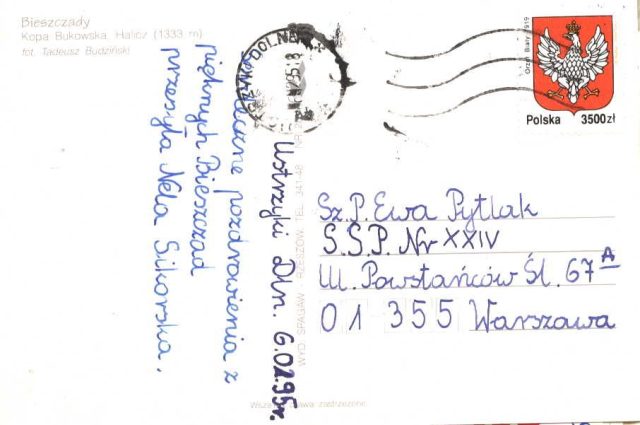 Bieszczady
Kopa Bukowska, Halicz (1333 m)
fot. Tadeusz Budziński
pozdrowienia z
pięknych Bieszczad
przesyła Nela Sikorska.
Ustrzyki Dln. 6.02.95r.
WYD. SPAGAW - RZESZÓW, TEL. 341-48
Orzeł Biały 1919
Polska 3500zł
Sz.P. Ewa Pytlak
S.S.P. Nr XXIV
Ul. Powstańców Śl. 67A
01 355 Warszawa
zastrzeżone